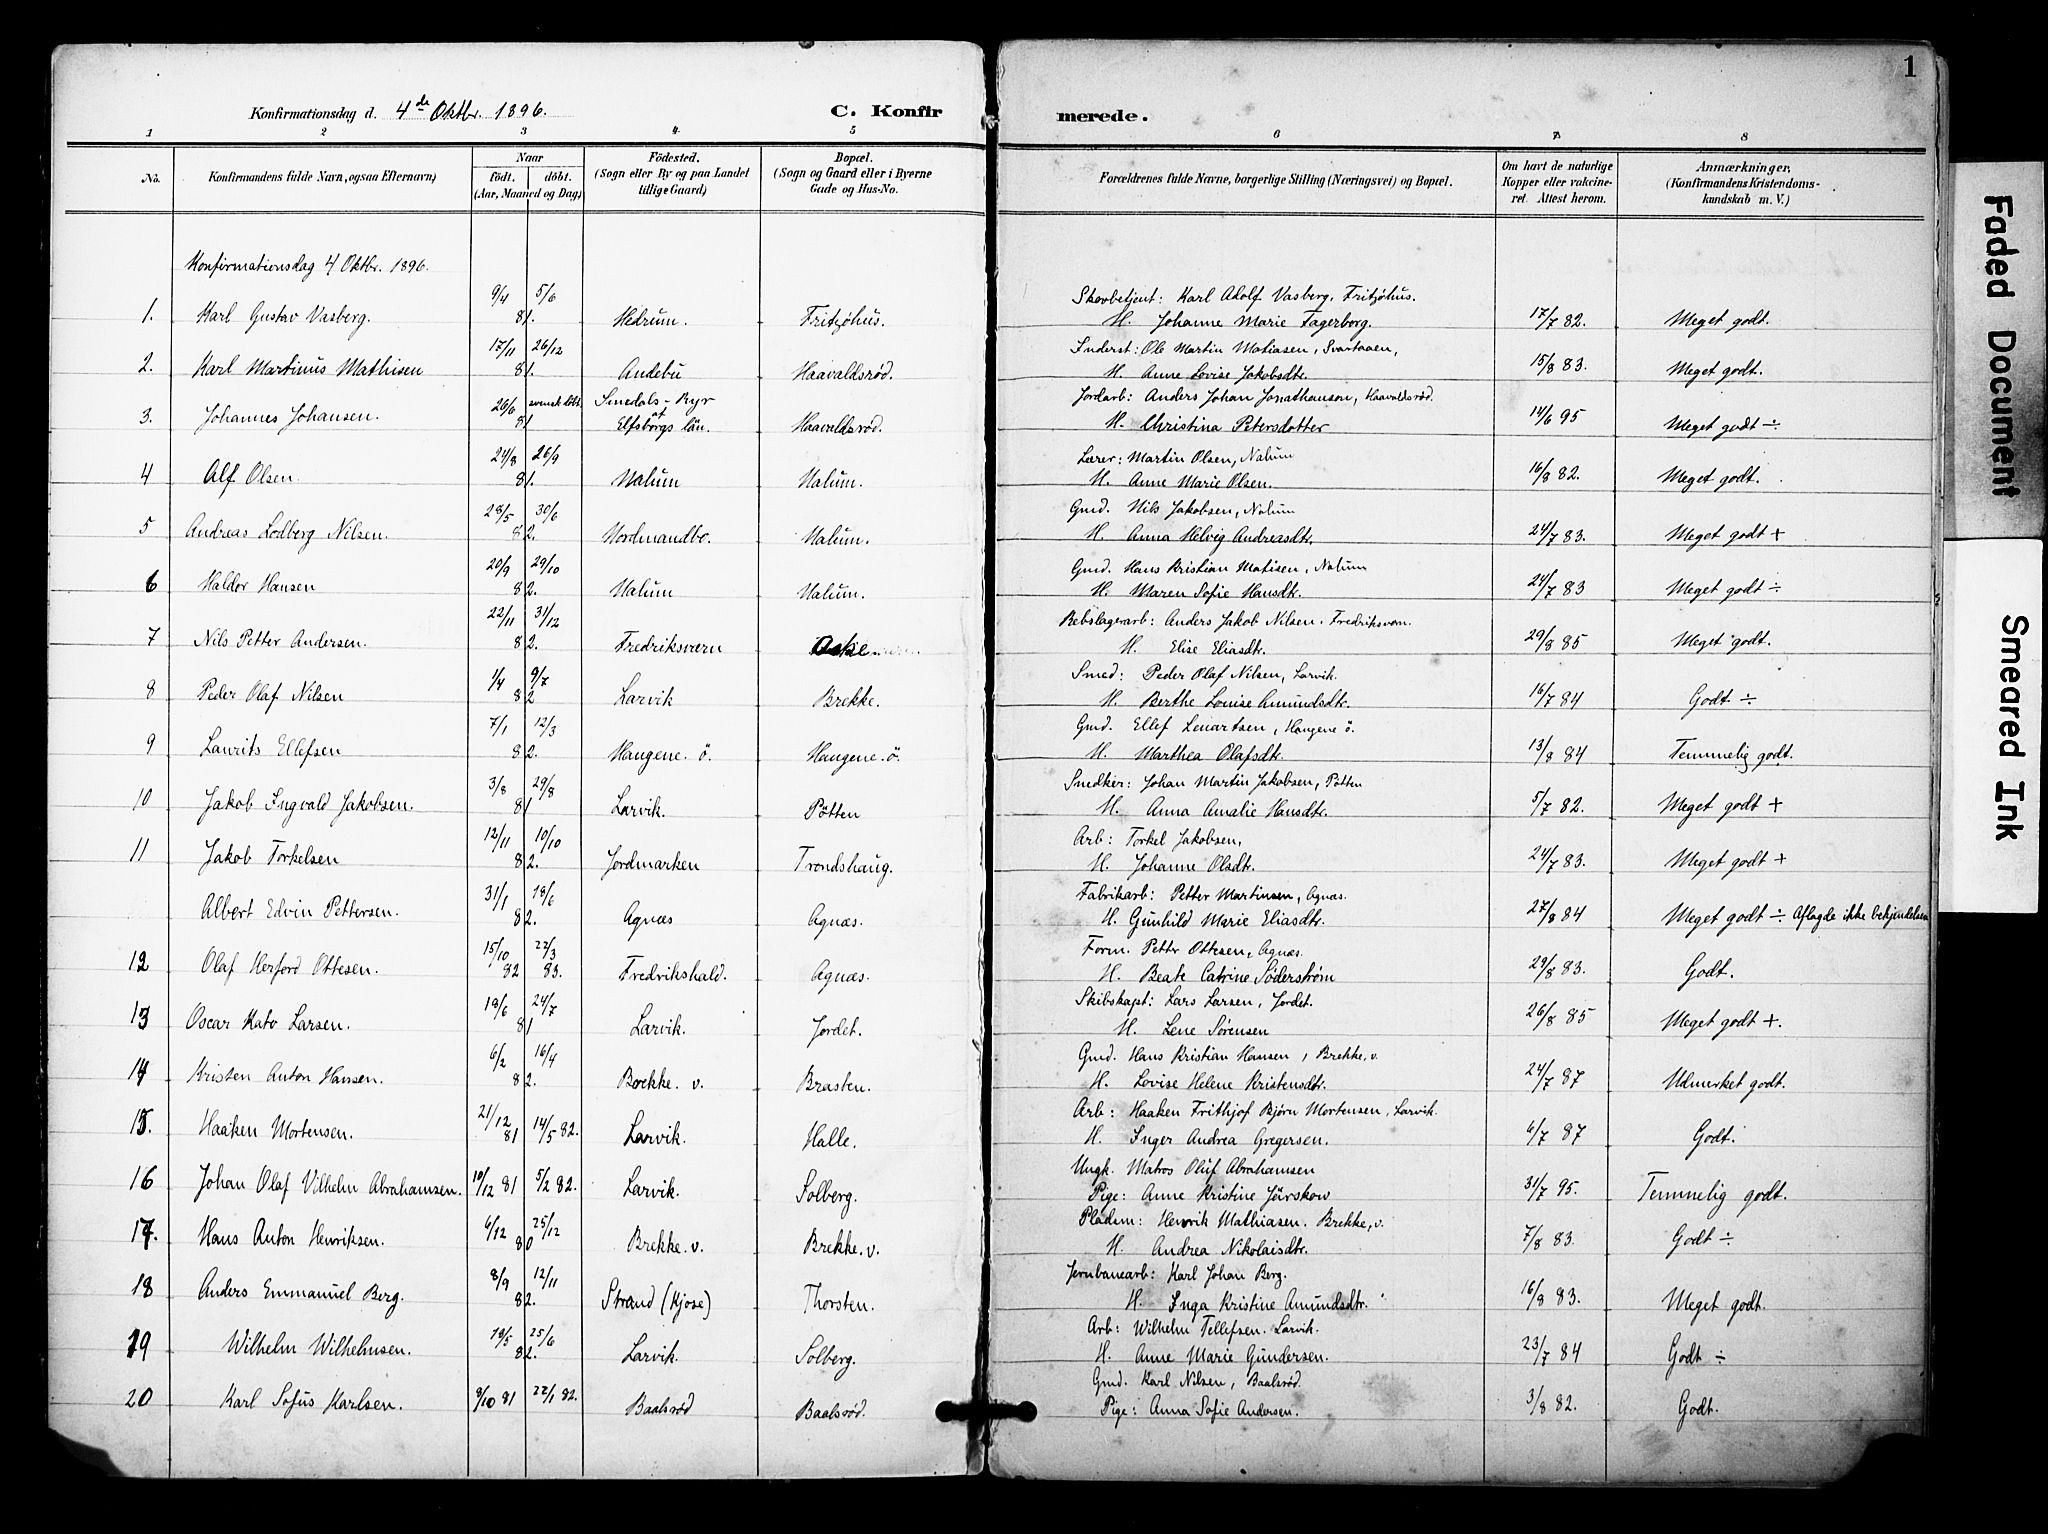 1
Konfirmationsdag d. 4de Oktbr. 1896. C. Konfirmerede.
1 2 3 4 5 6 7 8
No. Konfirmandens fulde Navn, ogsaa Efternavn) Naar födt. döbt. (Aar, Maaned og Dag) Födested. (Sogn eller By og paa Landet tillige Gaard) Bopæl. (Sogn og Gaard eller i Byerne Gade og Hus-No. Forældrenes fulde Navne, borgerlige Stilling (Næringsvei) og Bopæl. Om havt de naturlige Kopper eller vakcineret. Attest herom. Anmærkninger, (Konfirmandens Kristendomskundskab m. V.)
Konfirmationsdag 4 Oktbr. 1896.
9/4 5/6 Skovbetjent: Karl Adolf Vasberg, Fritzöhus.
1. Karl Gustav Vasberg. 81. Hedrum. Fritzöhus. H. Johanne Marie Fagerborg. 17/7 82. Meget godt.
17/11 26/12 Inderst: Ole Martin Matiasen, Svartaaen,
2. Karl Martinus Mathisen 81. Andebu Haavaldsröd. H. Anne Lovise Jakobsdtr. 15/8 83. Meget godt.
26/6 svensk döbt. Smedals-Ryr Jordarb: Anders Johan Jonathanson, Haavaldsröd.
3. Johannes Johansen. 81 Elfsborgs län. Haavaldsröd. H. Christina Petersdotter 14/6 95 Meget godt ÷
24/8 26/9 Lærer: Martin Olsen, Nalum
4 Alf Olsen. 81. Nalum Nalum. H. Anne Marie Olsen. 16/8 82. Meget godt.
28/5 30/6 Gmd. Nils Jakobsen, Nalum
5 Andreas Lodberg Nilsen. 82. Nordmandbo. Nalum. H. Anna Helvig Andreasdtr. 24/7 83. Meget godt +
20/9 29/10 Gmd. Hans Kristian Matisen, Nalum
6 Haldor Hansen 82. Nalum Nalum. H. Maren Sofie Hansdtr. 24/7 83 Meget godt ÷
22/11 31/12 Rebslagerarb: Anders Jakob Nilsen. Fredriksværn.
7 Nils Petter Andersen. 82. Fredriksværn H. Elise Eliasdtr. 29/8 85 Meget godt.
1/4 9/7 Smed: Peder Olaf Nilsen, Larvik.
8 Peder Olaf Nilsen 82 Larvik Brekke. H. Berthe Louise Amundsdtr. 16/7 84 Godt ÷
7/1 12/3 Gmd. Ellef Lenartsen, Haugene ö.
9 Laurits Ellefsen 82. Haugene. ö. Haugene. ö. H. Marthea Olafsdtr. 13/8 84 Temmelig godt.
3/8 29/8 Snedker: Johan Martin Jakobsen, Pötten
10 Jakob Ingvald Jakobsen. 81 Larvik. Pötten H. Anna Amalie Hansdtr. 5/7 82. Meget godt +
12/11 10/10 Arb: Torkel Jakobsen,
11 Jakob Torkelsen 82. Jordmarken Trondshaug. H. Johanne Olsdtr. 24/7 83. Meget godt +
31/1 18/6 Fabrikarb: Petter Martinsen, Agnæs.
Albert Edvin Pettersen. 82. Agnæs Agnæs. H. Gunhild Marie Eliasdtr. 27/8 84 Meget godt ÷ Aflagde ikke bekjendelsen
15/10 22/3 Form. Petter Ottesen, Agnæs.
12 Olaf Herford Ottesen. 82 83. Fredrikshald. Agnæs. H. Beate Catrine Söderström 29/8 83. Godt.
18/6 24/7 Skibskapt: Lars Larsen, Jordet.
13 Oscar Kato Larsen. 81 Larvik. Jordet. H. Lene Sörensen 26/8 85 Meget godt +.
6/2 16/4 Gmd. Hans Kristian Hansen, Brekke, v.
14 Kristen Anton Hansen. 82. Brekke. v. Brasten. H. Lovise Helene Kristensdtr. 24/7 87 Udmerket godt.
21/12 Arb: Haaken Frithjof Björn Mortensen, Larvik.
15. Haaken Mortensen. 81 14/5 82. Larvik. Halle. H. Inger Andrea Gregersen. 6/7 87 Godt.
Ungk. Matros Oluf Abrahamsen
16 Johan Olaf Vilhelm Abrahamsen. 10/12 81 5/2 82. Larvik. Solberg. Pige: Anne Kristine Jörskow 31/7 95. Temmelig godt.
6/12 25/12 Pladsm: Henrik Mathiasen. Brekke, v.
17. Hans Anton Henriksen. 80 Brekke. v. Brekke. v. H. Andrea Nikolaisdtr. 7/8 83. Godt ÷
8/9 12/11 Jernbanearb: Karl Johan Berg.
18 Anders Emmanuel Berg. 82. Strand (Kjose) Thorsten. H. Inga Kristine Amundsdtr. 16/8 83. Meget godt.
19/5 25/6 Arb: Wilhelm Tellefsen. Larvik.
19 Wilhelm Wilhelmsen. 82. Larvik. Solberg. H. Anne Marie Gundersen. 23/7 84 Godt ÷
Gmd. Karl Nilsen, Baalsröd.
20 Karl Sofus Karlsen. 8/10 81 22/1 82. Baalsröd Baalsröd. Pige: Anna Sofie Andersen. 3/8 82. Godt.
Faded Document
Smeared Ink